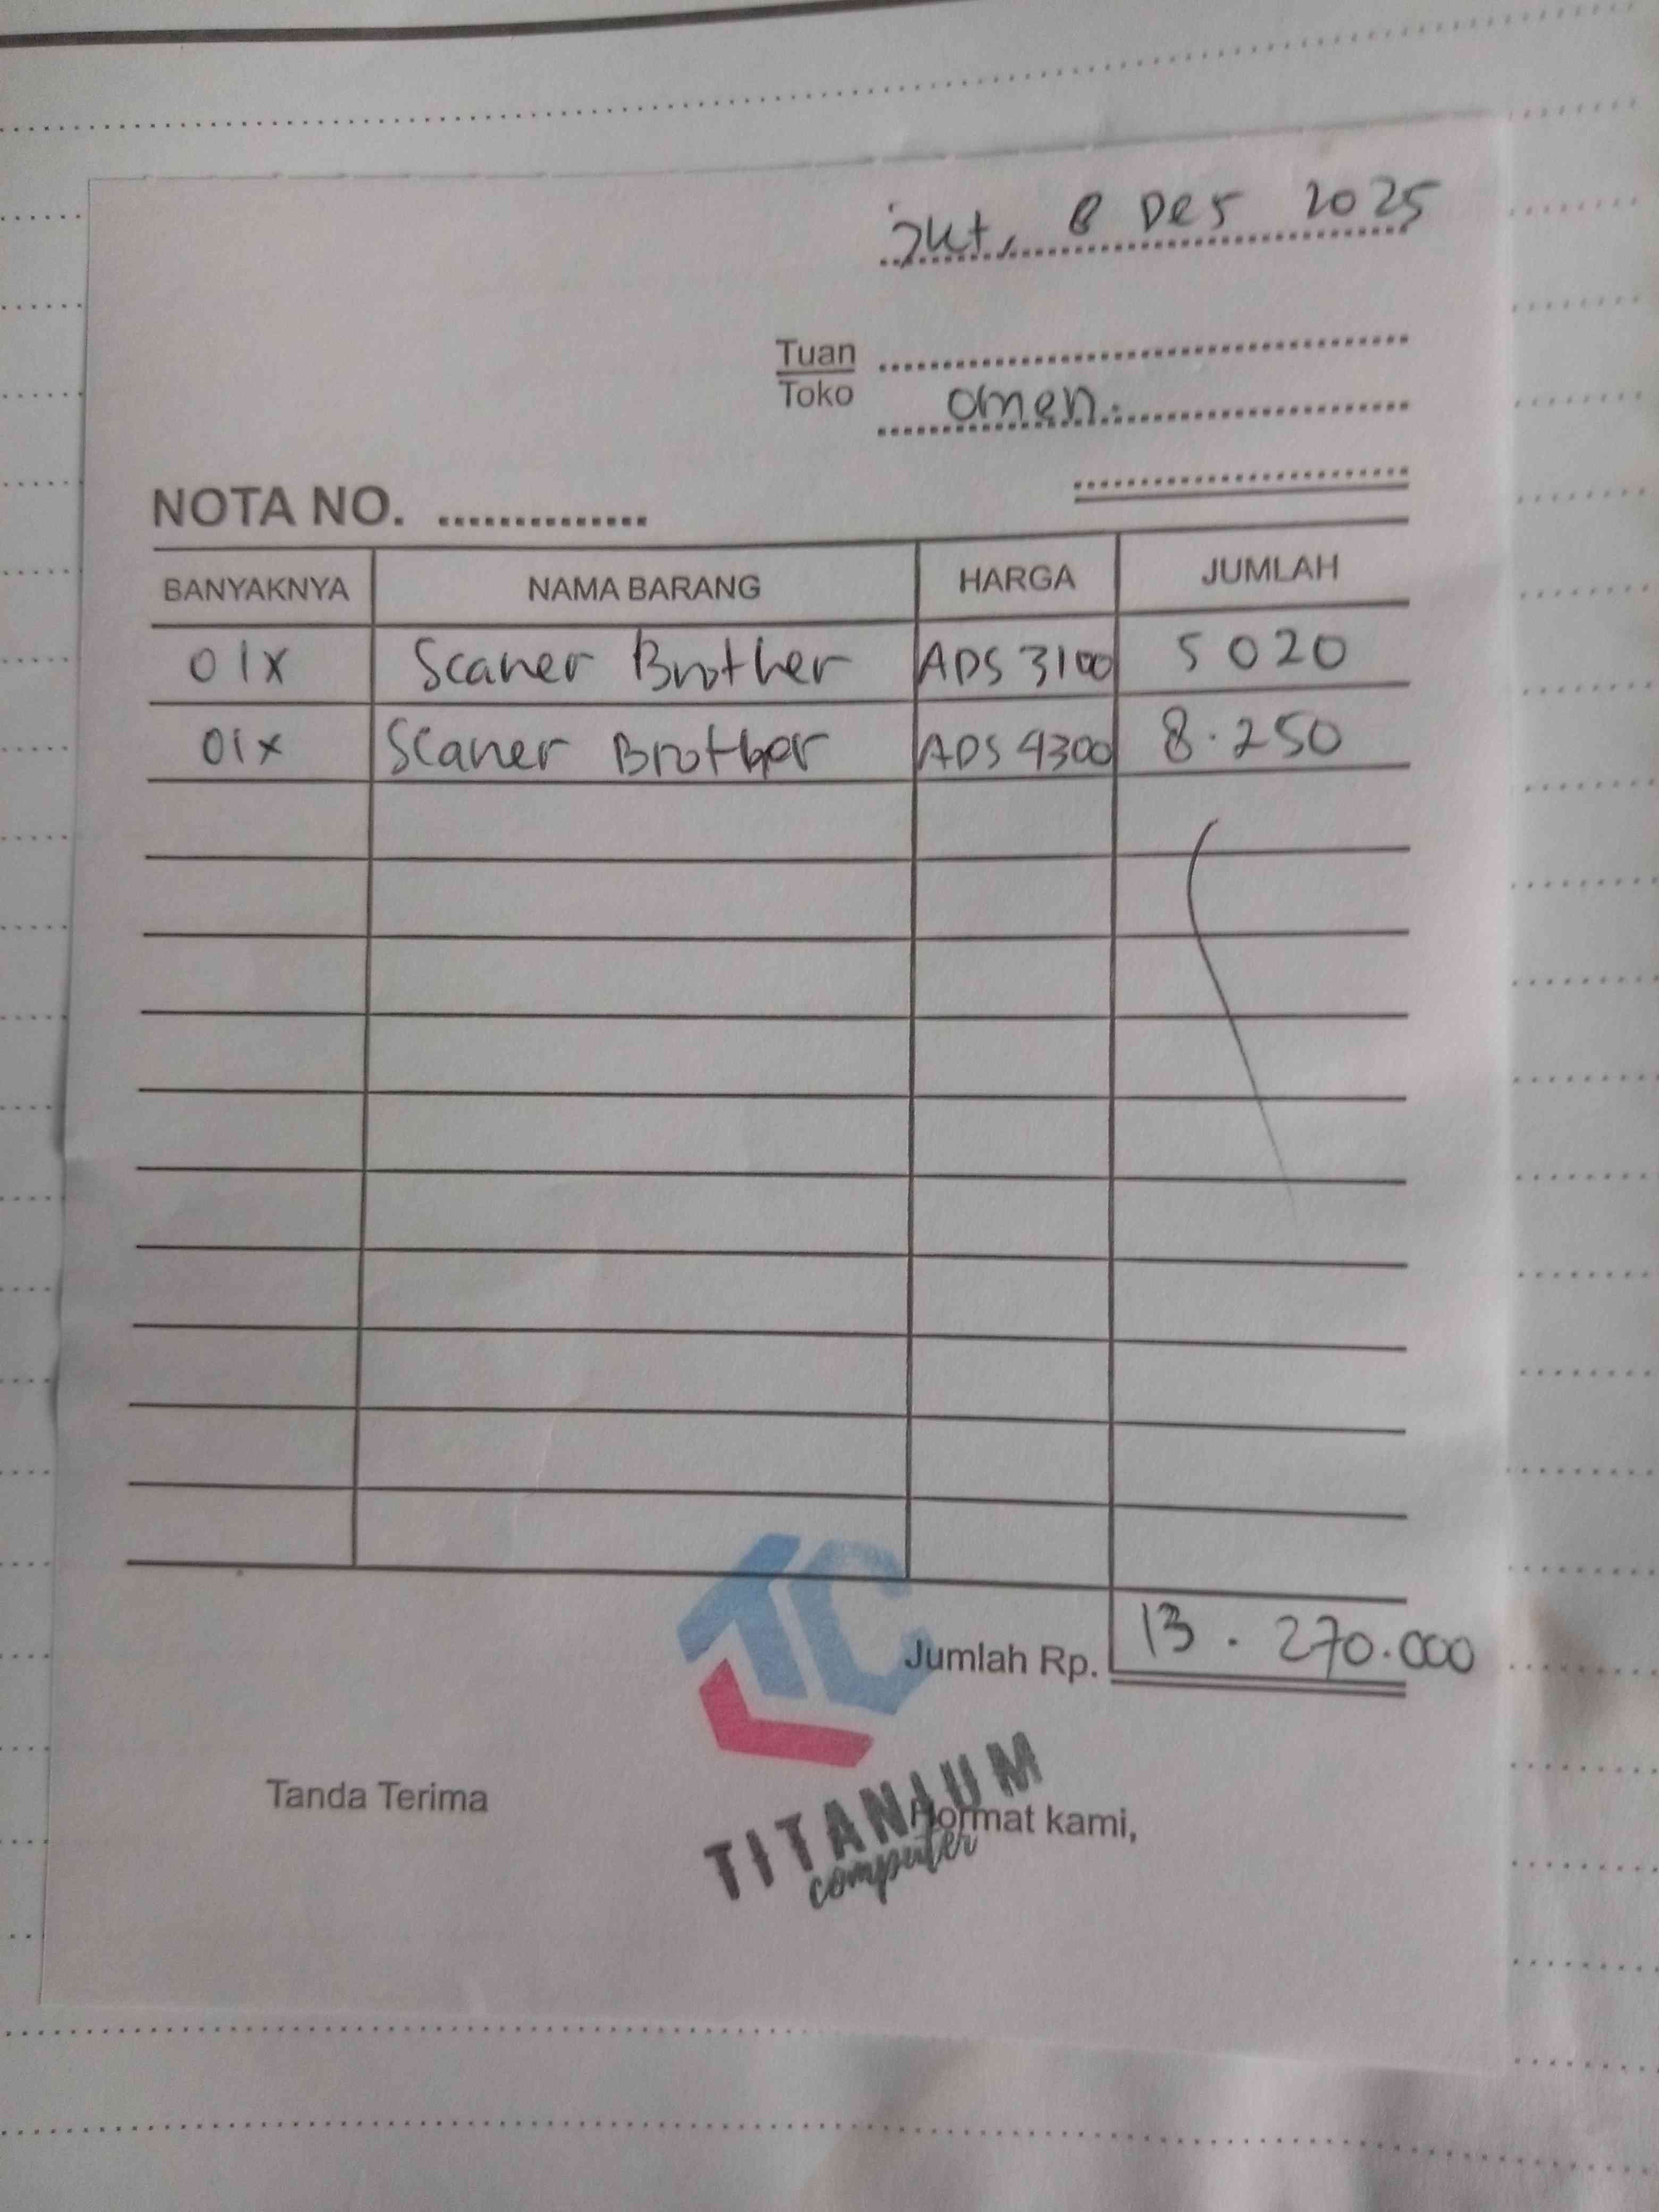 Jkt, 8 Des 2025
Tuan
Toko omen.
NOTA NO. ..............
BANYAKNYA NAMA BARANG HARGA JUMLAH
01x Scaner Brother ADS 3100 5 020
01x Scaner Brother ADS 4300 8.250
TC
Jumlah Rp. 13.270.000
Tanda Terima Hormat kami,
TITANIUM
computer